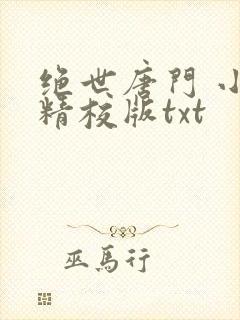 绝世唐門 小
精校版txt
巫馬行